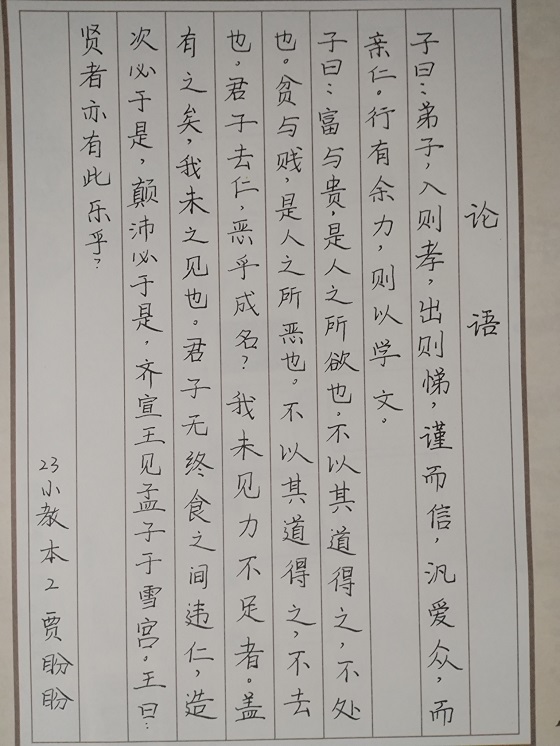 论语
子曰：弟子，入则孝，出则悌，谨而信，汎爱众，而
亲仁。行有余力，则以学文。
子曰：富与贵，是人之所欲也。不以其道得之，不处
也。贫与贱，是人之所恶也。不以其道得之，不去
也。君子去仁，恶乎成名？我未见力不足者。盖
有之矣，我未之见也。君子无终食之间违仁，造
次必于是，颠沛必于是，齐宣王见孟子于雪宫。王曰：
贤者亦有此乐乎？
23小教本2贾盼盼